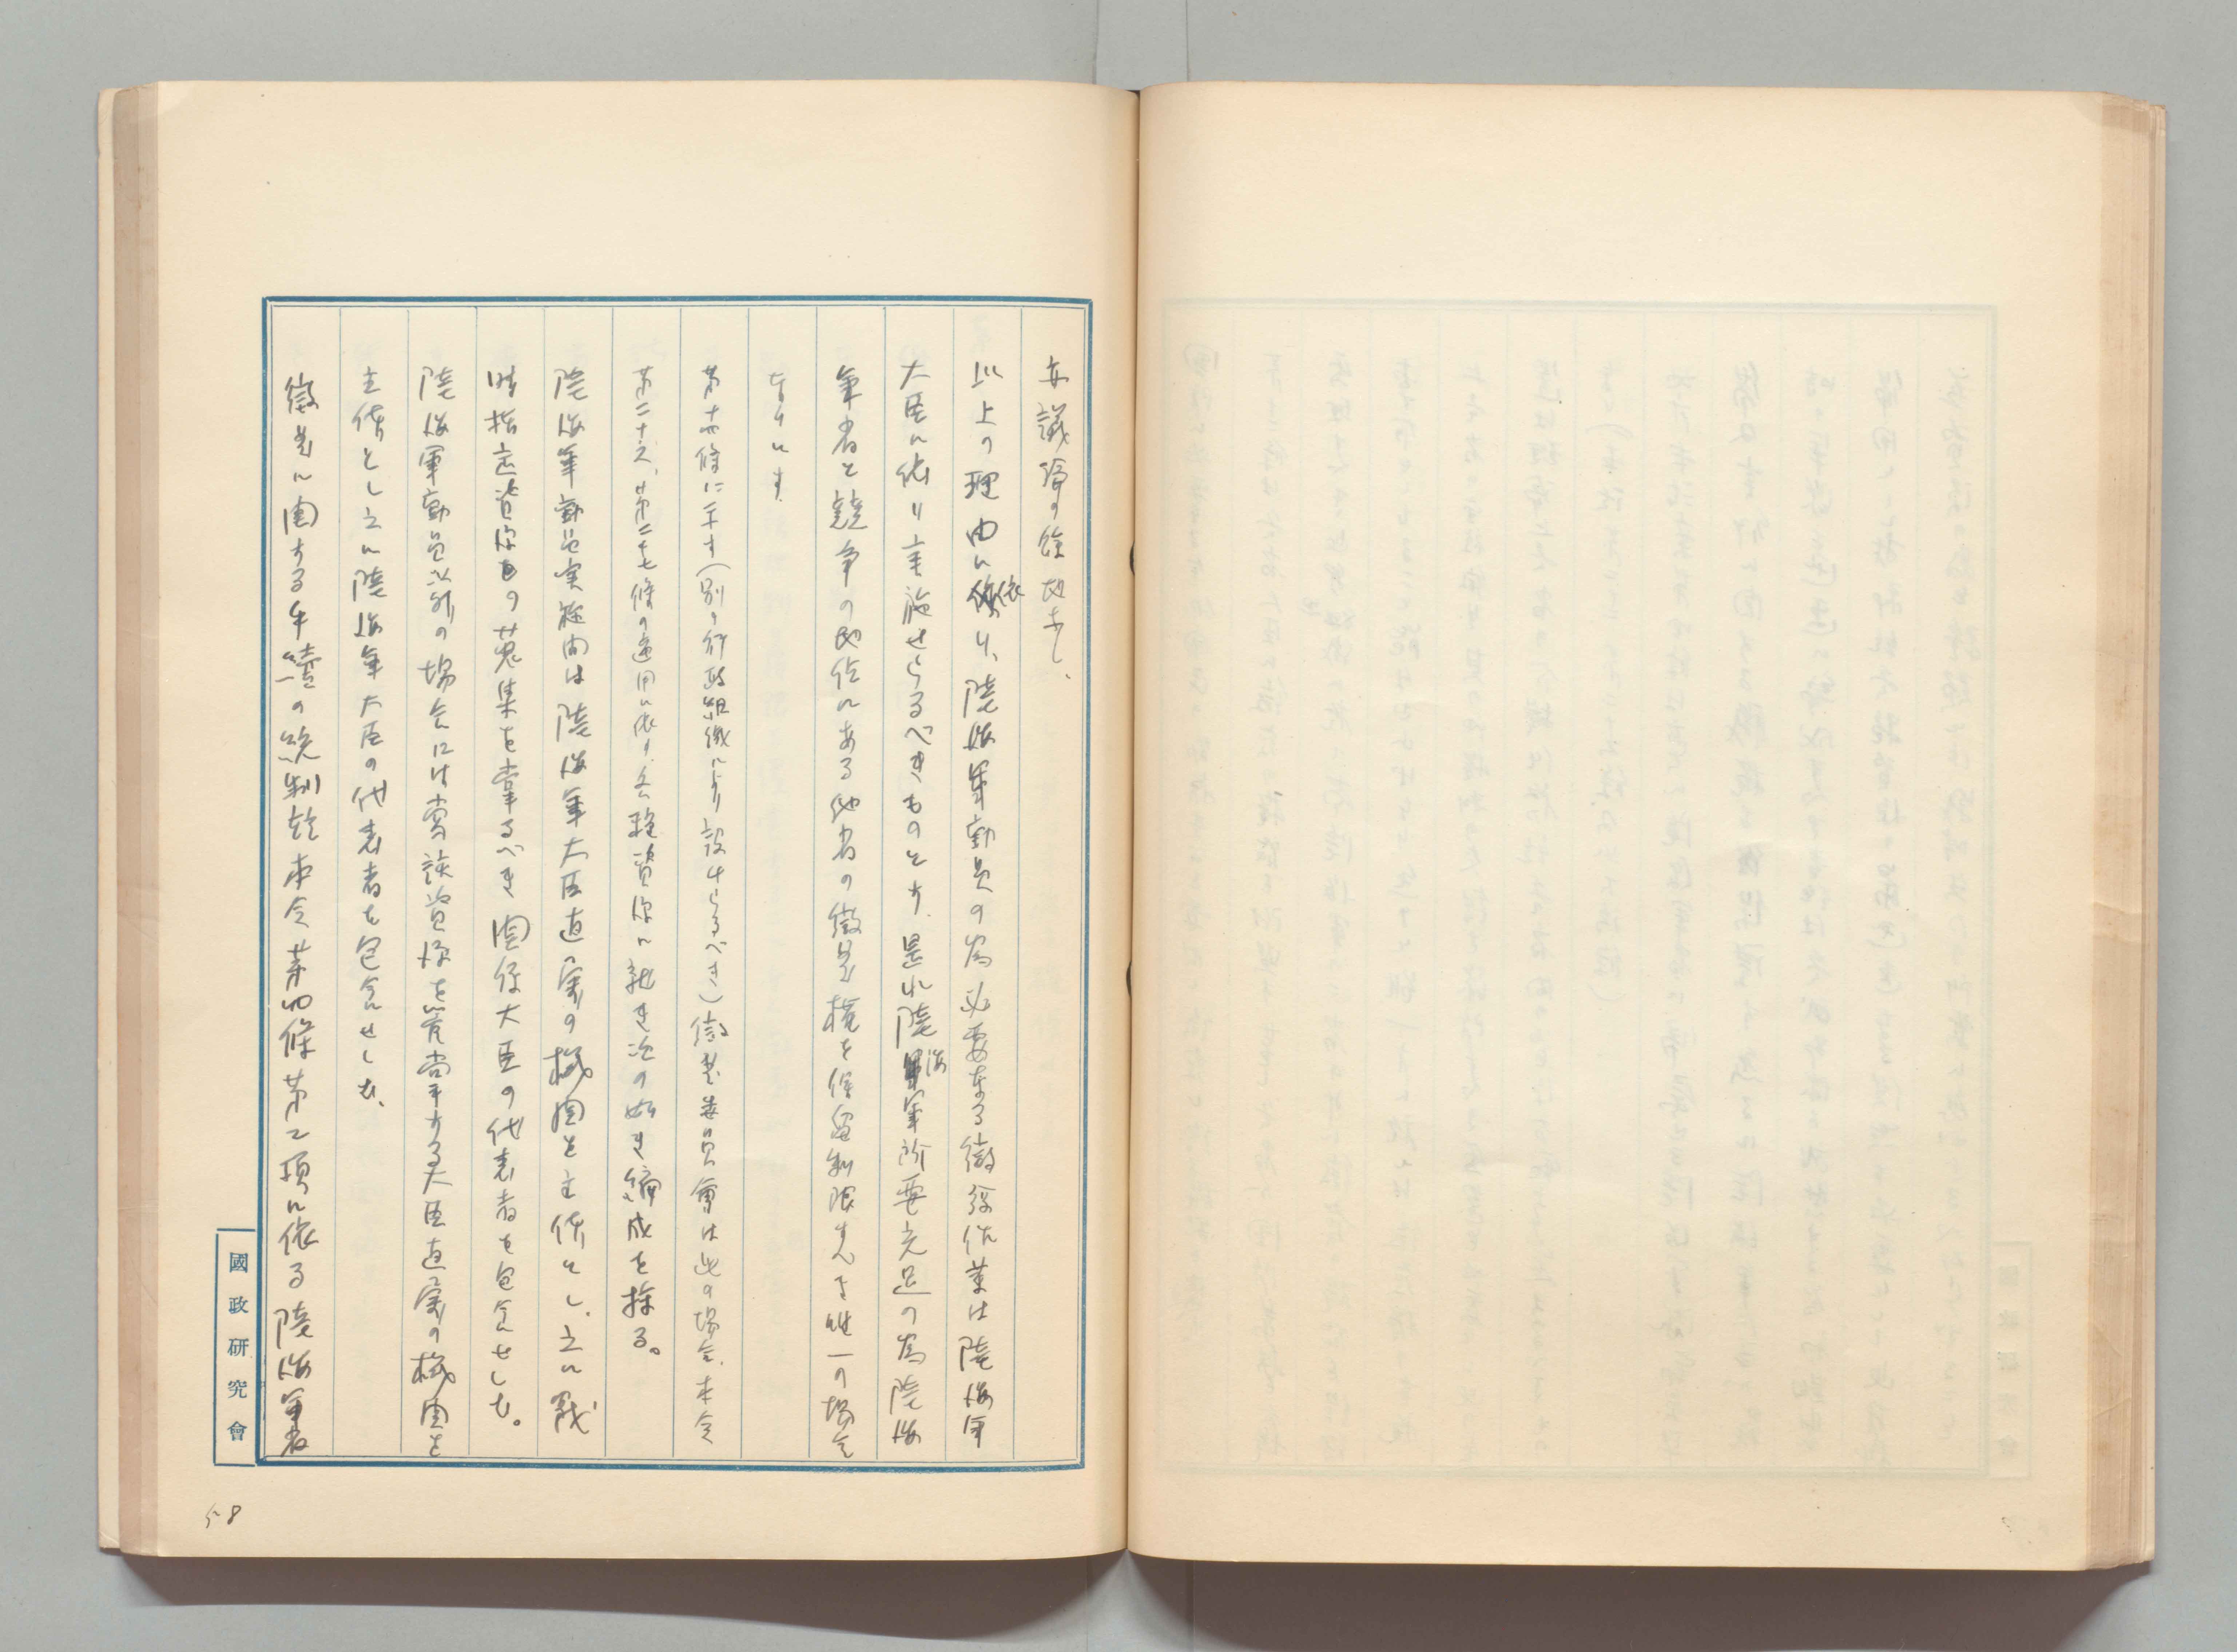 亦議論の餘地なし、
以上の理由に依り、陸海軍動員の為必要なる徴發作業は陸海軍
大臣に依り実施せらるべきものとす。是れ陸海軍所要充足の為陸海
軍省と競争の地位にある他省の徴発権を保留制限する唯一の場合
なりとす
第十四條に示す(別の行政組織により設けらるべき)徴発委員會は此の場合、本令
第二十六、第二十七條の適用に依り、各種資源に就き次の如き編成を採る。
陸海軍動員実施間は陸海軍大臣直属の機関を主体とし、之に戰
時指定資源の蒐集を掌るべき関係大臣の代表者を包含せしむ。
陸海軍動員以外の場合には當該資源を管掌する大臣直属の機関を
主体とし之に陸海軍大臣の代表者を包含せしむ、
徴発に関する手續の統制於本令第四條第二項に依る陸海軍省
國政研究會
58